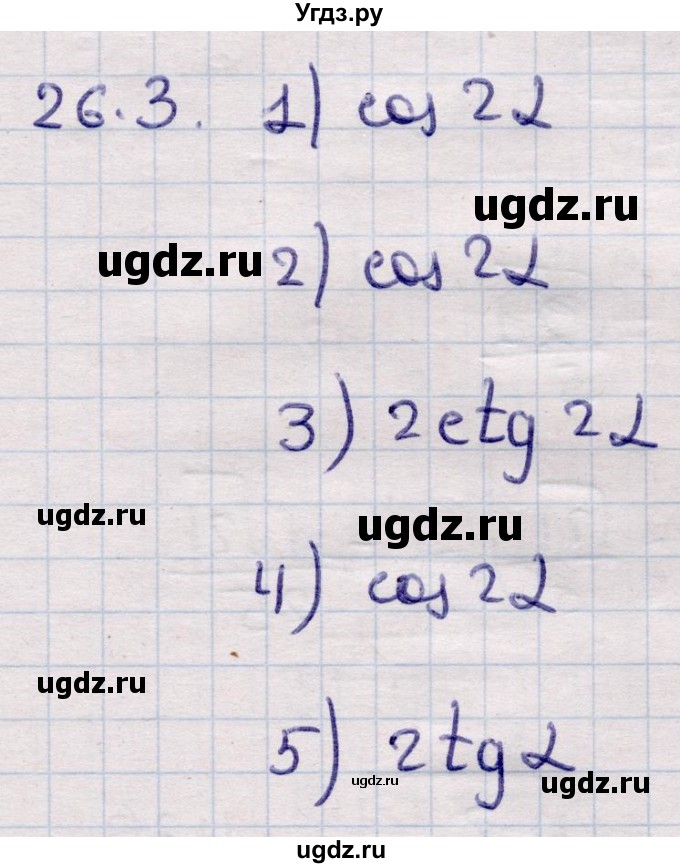 Угдз.ру
26.3. 1) cos 2α
ugdz.ru
ugdz.ru
2) cos 2α
3) 2ctg 2α
ugdz.ru
ugdz.ru
4) cos 2α
ugdz.ru
5) 2tg α
ugdz.ru
ugdz.ru
ugdz.ru